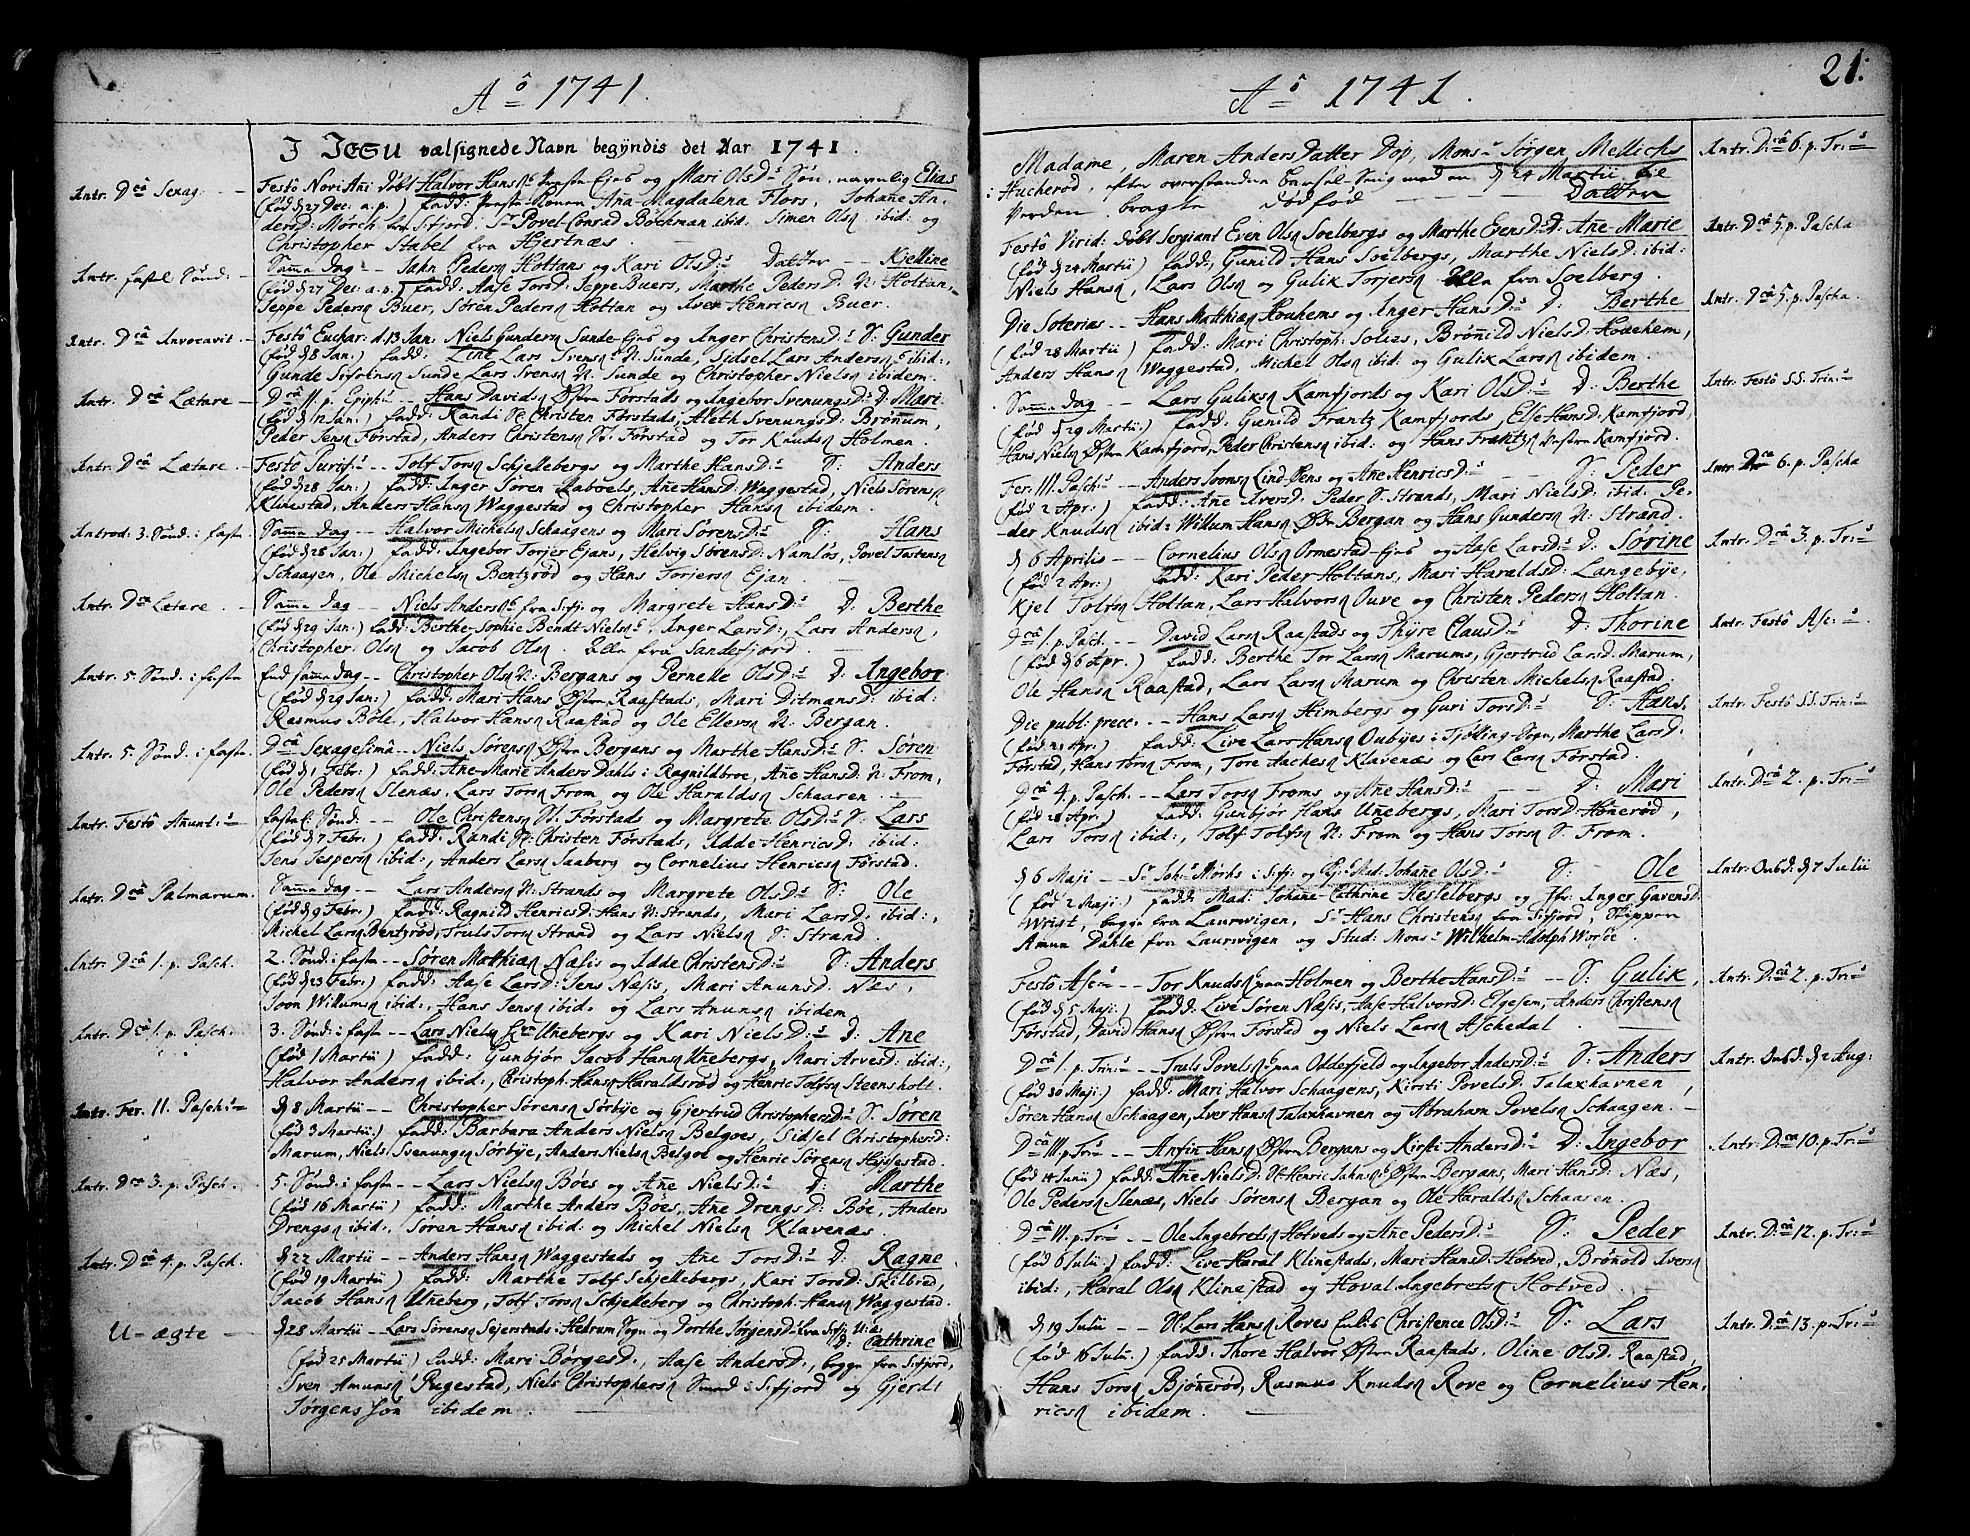 Aô 1741.
I JESU velsignede Navn begÿndis det Aar 1741.
Intr. Dcâ Sexag.
Festô Novi Añi døbt Halvor Hans Ejes og Mari OlsD: Søn, navnlig Elias
(fød d 27 Dec: a. p.) fadd: Ana Magdalena Flors, Johañe An-
ders D: Mørch fra Sifjord, Sr Povel Conrad Bøchman ibid. Simen Olsn ibid: og
Christopher Stabel fra Hjertnæs.
Intr. fastel Sønd:
Samme dag -- Jahn Pedersn Holtans og Kari OlsD: Datter -- Kjelline
(fød d 27 Dec: a. p.) fadd: Aase TorsD: Seppe Buers, Marthe PedersD. N: Holtan,
Seppe Pedersn Buer, Søren Pedersn Holtan og Iver Henricsn Buer.
Intr. Dcâ Invocavit
Festô Euchar: d. 13 Jan. Niels Gundersn Sunde Ejes og Anger ChristensD: S: Gunder
(fød d 8 Jan:) fadd: Line Lars Svens N: Sunde, Sidsel Lars Anders ibid:,
Gunde Sunde Lars Svensn N. Sunde og Christopher Nielsn ibidem.
Intr. Dcâ Lætare
Dcâ II. p. Epiph: -- Hans Davidsn Østre Førstads og Ingebor SvenungsD: D: Mari
(fød d 12 Jan:) fadd: Randi Christen Førstads, Aleth SvenungsD: Brønum,
Peder Jensn Førstad, Anders Christensn N. Førstad og Tor Knudsn Holmen.
Intr. Dcâ Lætare
Festô Purif: -- Tolf Torsn Schjellebergs og Marthe HansD: S: Anders
(fød d 28 Jan:) fadd: Inger Søren Laboels, Añe HansD: Waggestad, Niels Sørensn
Klinestad, Anders Hansn Waggestad og Christopher Hansn ibidem.
Introd. 3. Sønd: i faste
Samme dag -- Halvor Michelsn Schaagens og Mari SørensD: S: Hans
(fød d 28 Jan:) fadd: Ingebor Torjer Ejans, Helvig SørensD: Namløs, Povel Tastensn
Schaagen, Ole Michelsn Bentzrød og Hans Torjersn Ejan.
Intr. Dca Lætare
Samme dag -- Niels Anders fra Sifj: og Margrete HansD: D: Berthe
(fød d 29 Jan:) fadd: Berthe-Sophie Bendt Niels, Inger LarsD:, Lars Andersn,
Christopher Olsn og Jacob Olsn. Alle fra Sandefjord.
Intr. 5. Sønd: i faste
End samme dag -- Christopher Olsn N: Bergans og Pernelle OlsD: D: Ingebor
(fød d 29 Jan:) fadd: Mari Hans Østre Raastads, Mari DitmansD: ibid:
Rasmus Bøle, Halvor Hansn Raastad og Ole Ellevsn N: Bergan.
Intr. 5. Sønd: i faste.
Dcâ Sexagesima -- Niels Sørensn Østre Bergans og Marthe HansD: S: Søren
(fød d 1 Febr:) fadd: Ane-Marie Anders Dahls i Ragnildroe, Añe HansD: N: From,
Ole Pedersn Slenæs, Lars Torsn From og Ole Haraldsn Schaaren.
Intr. Festô Añunt:
fastel: Sønd: -- Ole Christensn N. Førstads og Margrete OlsD: S: Lars
(fød d 7 Febr:) fadd: Randi Christen Førstads, Idde HenricsD: ibid:
Jens Jespersn ibid:, Anders Larsn Saaberg og Cornelius Henricsn Førstad.
Intr. Dcâ Palmarum.
Samme dag -- Lars Andersn N: Strands og Margrete OlsD: S: Ole
(fød d 9 Febr:) fadd: Ragnild HenricsD: Hans N: Strands, Mari LarsD: ibid:,
Michel Larsn Bentzrød, Truls Torsn Strand og Lars Nielsn S: Strand.
Intr. Dcâ 1. p. Pasch.
2. Sønd: faste -- Søren Mathiasn Næsis og Idde ChristensD: S: Anders
(fød d 23 Febr:) fadd: Aase LarsD: Jens Næsis, Mari AmunsD: Næs,
Soon Willumsn ibid:, Hans Jensn ibid. og Lars Amunsn ibidem
Intr. Dcâ 1. p. Pasch.
3. Sønd: i faste -- Lars Nielsn Unebergs og Kari NielsD: D: Ane
(fød 1 Martii) fadd: Gunbjør Jacob Hans Unebergs, Mari ArvesD: ibid:
Halvor Andersn ibid:, Christoph: Hansn Haraldsrød og Henric Tolfsn Steensholt.
Intr. Fer. 11. Pasch:
d 8 Martii -- Christopher Sørensn Sørbÿe og Gjertrud ChristophersD: S: Søren
(fød 3 Martii:) fadd: Barbara Anders Niels Belgoes, Sidsel ChristophersD:
Marum, Niels Svenungsn Sørbÿe, Anders Nielsn Belgoe og Henric Sørensn Hÿssestad.
Intr. Dca 3. p. Pasch.
5. Sønd: i faste -- Lars Nielsn Bøes og Añe NielsD: D: Marthe
(fød 16 Martii) fadd: Marthe Anders Bøes, Añe DrengsD: Bøe, Anders
Drengsn ibid:, Søren Hansn ibid: og Michel Nielsn Klavenæs
Intr. Dcâ 4. p. Pasch.
d 22 Martii -- Anders Hansn Waggestads og Añe TorsD: D: Ragne
(fød 19 Martii) fadd: Marthe Tolf Schjellebergs, Kari TorsD: Skilbred,
Jacob Hansn Uneberg, Tolf Torsn Schjelleberg og Christoph: Hansn Waggestad.
U-ægte --
d 28 Martii -- Lars Sørensn Sejerstads i Hedrum Sogn og Dorthe JørgensD: fra Sifj: U:æ: D: Cathrine
(fød 25 Martii) fadd: Mari BørgesD., Aase AndersD:, begge fra Sifjord,
Sven Amuns Pugestad, Niels Christophersn Smed i Sifjord og Gjerdt
Jørgensson ibidem.
Aô 1741.
21.
Madame, Maren Anders Datter Dop, Mons: Jørgen Mellichs
i Hucherød, efter overstanden Barsel-Seng med en d 24 Martii til
Verden bragte dødfød Datter
Intr. D:câ 6. p. Tri:
Festô Virid: døbt Sergiant Even Olsn Soelbergs og Marthe EvensD: D: Añe Marie
(fød d 24 Martii) fadd: Gunild Hans Soelbergs, Marthe NielsD: ibid:
Niels Hansn, Lars Olsn og Gulik Torjersn alle fra Soelberg.
Intr. Dcâ 5. p. Pascha
Die Soterias -- Hans Matthiasn Houhems og Inger HansD: D: Berthe
(fød 28 Martii) fadd: Mari Christoph: Solies, Brønild NielsD: Houehem,
Anders Hansn Waggestad, Michel Olsn ibid: og Gulik Larsn ibidem.
Intr. Dcâ 5. p. Pascha.
Samme dag -- Lars Guliksn Kamfjords og Kari OlsD: D: Berthe
(fød d 29 Martii:) fadd: Gunild Frantz Kamfjords, Else HansD: Kamfjord,
Hans Nielsn Østre Kamfjord, Peder Christensn ibid: og Hans Frantzn Vestre Kamfjord.
Intr. Festô SS. Trin:
Fer. III. Pasch: -- Anders Soonsn Lind-Øens og Añe HenricsD: S: Peder
(fød 2 Apr:) fadd: Añe IversD: Peder S: Strands, Mari NielsD: ibid: Pe-
der Knudsn ibid: Willum Hansn Bergan og Hans Gundersn N: Strand.
Intr. Dca 6. p. Pascha
d 6 Aprilis -- Cornelius Olsn Ormestad Ejes og Aase LarsD: D: Sørine
(fød 2 Apr:) fadd: Kari Peder Holtans, Mari HaraldsD: Langebÿe,
Kjel Tolfsn Holtan, Lars Halvorsn Ouve og Christen Pedersn Holtan.
Intr. Dcâ 3. p. Tri:
Dcâ 1. p. Pasch. -- David Larsn Raastads og Thÿre ClausD: D: Thorine
(fød d 6 Apr:) fadd: Berthe Tor Lars Marums, Gjertrud LarsD: Marum,
Ole Hansn Raastad, Lars Larsn Marum og Christen Michelsn Raastad.
Intr. Festô Asc:
Die publ: prec: -- Hans Larsn Himbergs og Guri TorsD: S: Hans.
(fød 21 Apr:) fadd: Live Lars Hans Oubÿes i Tjølling-Sogn, Marthe LarsD:
Førstad, Hans Torsn From, Tore Aachesn Klavenæs og Lars Larsn Førstad.
Intr. Festô SS. Trin:
Dcâ 4. p. Pasch. -- Lars Torsn Froms og Añe HansD: D: Mari
(fød 28 Apr:) fadd: Gunbjør Hans Unebergs, Mari TorsD: Hønerød,
Lars Torsn ibid:, Tolf Tolfsn N: From og Hans Torsn S: From.
Intr. Dcâ 2. p. Tri:
d 6 Maji -- Sr Joh: Mørhs i Sifj: og Mad: Johañe OlsD: S: Ole
(fød 2 Maji:) fadd: Mad: Johane-Cathrine Hesselbergs og Jfr: Anger GavensD:
Wrigt, begge fra Laurwigen, Sr Hans Christensn fra Sifjord, Skipper
Amun Dahle fra Laurwigen og Stud: Mons: Wilhelm-Adolph Worsøe.
Intr. OnsD: d 7 Julii
Festo Asc: -- Tor Knuds paa Holmen og Berthe HansD: -- S: Gulik,
(fød d 5 Maji:) fadd: Live Søren Næsis, Aase HalvorsD: Elgesem, Anders Christensn
Førstad, David Hansn Østre Førstad og Niels Larsn Aschedal.
Intr. D:câ 2. p. Tri:
Dcâ 1. p. Trin: -- Truls Povels paa Oddefjeld og Ingebor AndersD: S: Anders
(fød 30 Maji:) fadd: Mari Halvor Schaagens, Kirsti PovelsD: Talaxhavnen,
Søren Hansn Schaagen, Iver Hansn Talaxhavnen og Abraham Povelsn Schaagen.
Intr. OnsD: d 2 Aug:
Dcâ III. p. Tri: -- Anfin Hansn Østre Bergans og Kirsti AndersD: D: Ingebor
(fød 14 Junii) fadd: Añe NielsD: Henric Jahns Østre Bergans, Mari HansD: Næs,
Ole Pedersn Slenæs, Niels Sørensn Bergan og Ole Haraldsn Schaasen.
Intr. D:ca 10. p. Tri:
Dcâ VI. p. Tr: -- Ole Ingebretsn Hotveds og Añe PedersD: S: Peder
(fød 6 Julii:) fadd: Live Haral Klinestads, Mari HansD: Hotved, Brønold Iversn
ibid:, Haral Olsn Klinestad og Hoval Ingebretsn Hotved.
Intr. D:câ 12. p. Tr:
d 19 Julii -- Lars Hansn Roves Christence OlsD: S: Lars
(fød 16 Julii.) fadd: Thore Halvor Østre Raastads, Oline OlsD. Raastad,
Hans Torsn Bjønerød, Rasmus Knudsn Rove og Cornelius Hen-
ricsn ibidem.
Intr. D:câ 13. p. Tr: